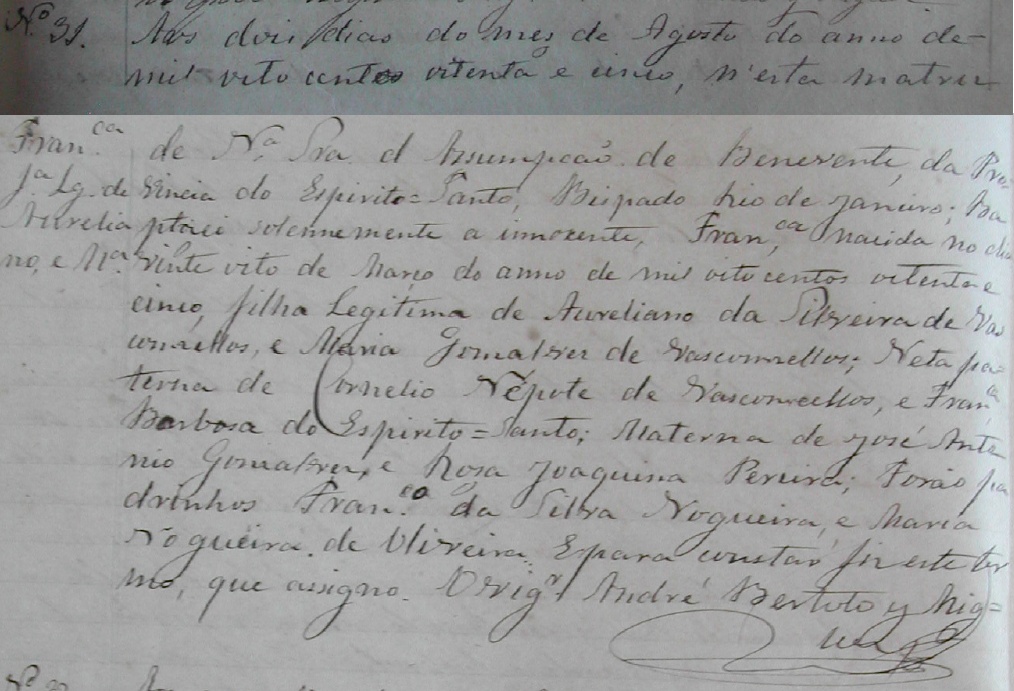 Nº 31.
Aos dois dias do mes de Agosto do anno de
mil oito centos oitenta e cinco, n'esta matriz
Fran.ca
fª Lg. de
Aurelia
no, e Mª.
de Nª. Sra d Assumpção de Benevente, da Pro-
vincia do Espirito=Santo, Bispado Rio de Janeiro; Ba
ptizei solennemente a innocente, Fran.ca nacida no dia
vinte oito de Março do anno de mil oitocentos oitenta e
cinco, filha Legitima de Aureliano da Silveira de Vas
concellos, e Maria Gonsalves de Vasconcellos; Neta pa-
terna de Cornelio Népote de Vasconcellos, e Fran.ca
Barbosa do Espirito=Santo; Materna de José Anto
nio Gonsalves, e Rosa Joaquina Pereira; Forão pa
drinhos Fran.co da Silva Nogueira, e Maria
Nogueira de Oliveira. E para constar fiz este ter
mo, que assigno. O Vig.º André Bertolo y Rig=